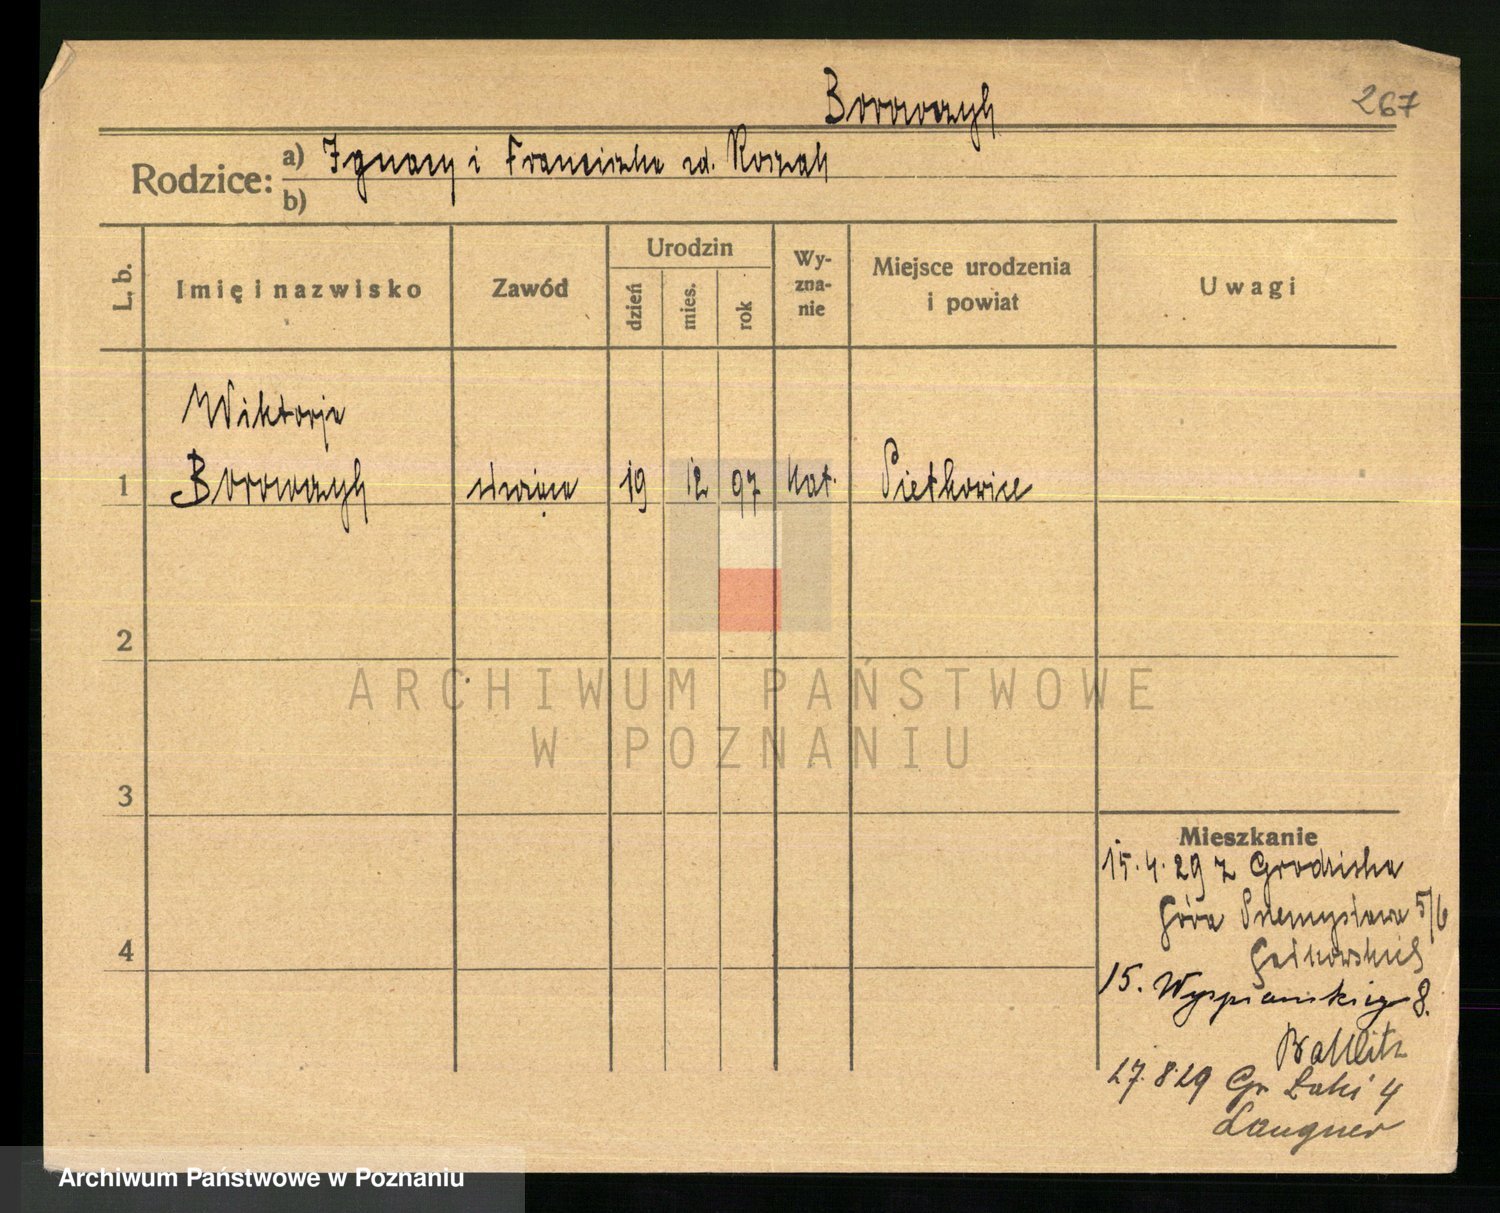 267
Borowczyk
Rodzice: a) Ignacy i Franciszka zd. Koszak
b)
L. b.
Imię i nazwisko
Zawód
Urodzin
dzień
mies.
rok
Wy-
zna-
nie
Miejsce urodzenia
i powiat
Uwagi
Wiktorja
1 Borowczyk służąca 19 12 97 kat. Piekowice
2
3
4
Mieszkanie
15.4.29 z Grodziska
Góra Przemysława 5/6
15. Wyspiańskiego 8.
27.8.29 Gr. Łąki 4
Langner
ARCHIWUM PAŃSTWOWE
W POZNANIU
Archiwum Państwowe w Poznaniu